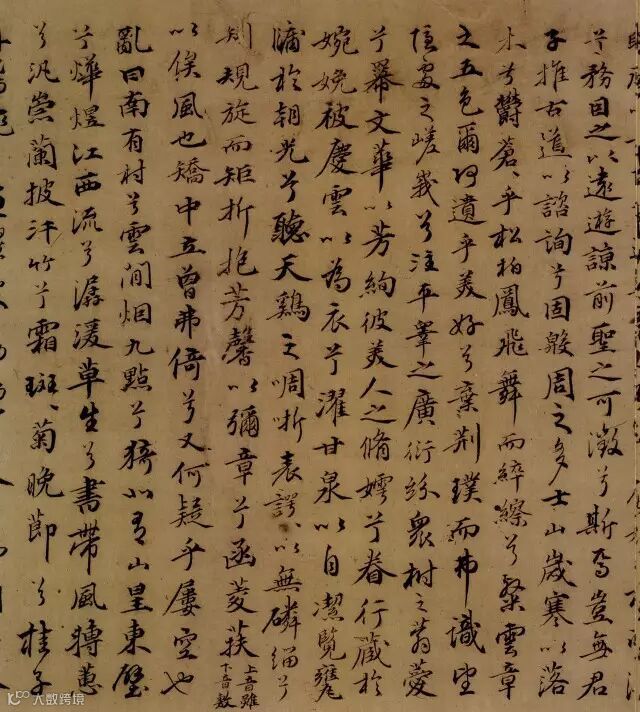 兮務目之以遠遊諒前聖之可徵兮斯焉豈無君
子推古道以諮詢兮固殷周之多士山歲寒以落
木兮鬱蒼、乎松柏鳳飛舞而綷縩兮粲雲章
之五色爾何遺乎美好兮棄荊璞而弗識望
隱處之嵯峩兮注平睪之廣衍紛衆樹之蓊薆
兮羃文華以芳絢彼美人之脩嫮兮眷行藏於
婉娩被慶雲以為衣兮濯甘泉以自潔覽甕
牖於朝光兮聽天鷄之啁哳表諤、以無磷緇兮
規旋而矩折抱芳馨以彌章兮函菱
上音雖
下音敖
以俟風也矯中立曾弗倚兮又何疑乎屢空也
亂曰南有村兮雲間烟九點兮猗山星東壁
兮燁煜江西流兮潺湲草生兮書帶風轉蕙
兮汎崇蘭披汗竹兮霜斑、菊晚節兮桂子
大数跨境